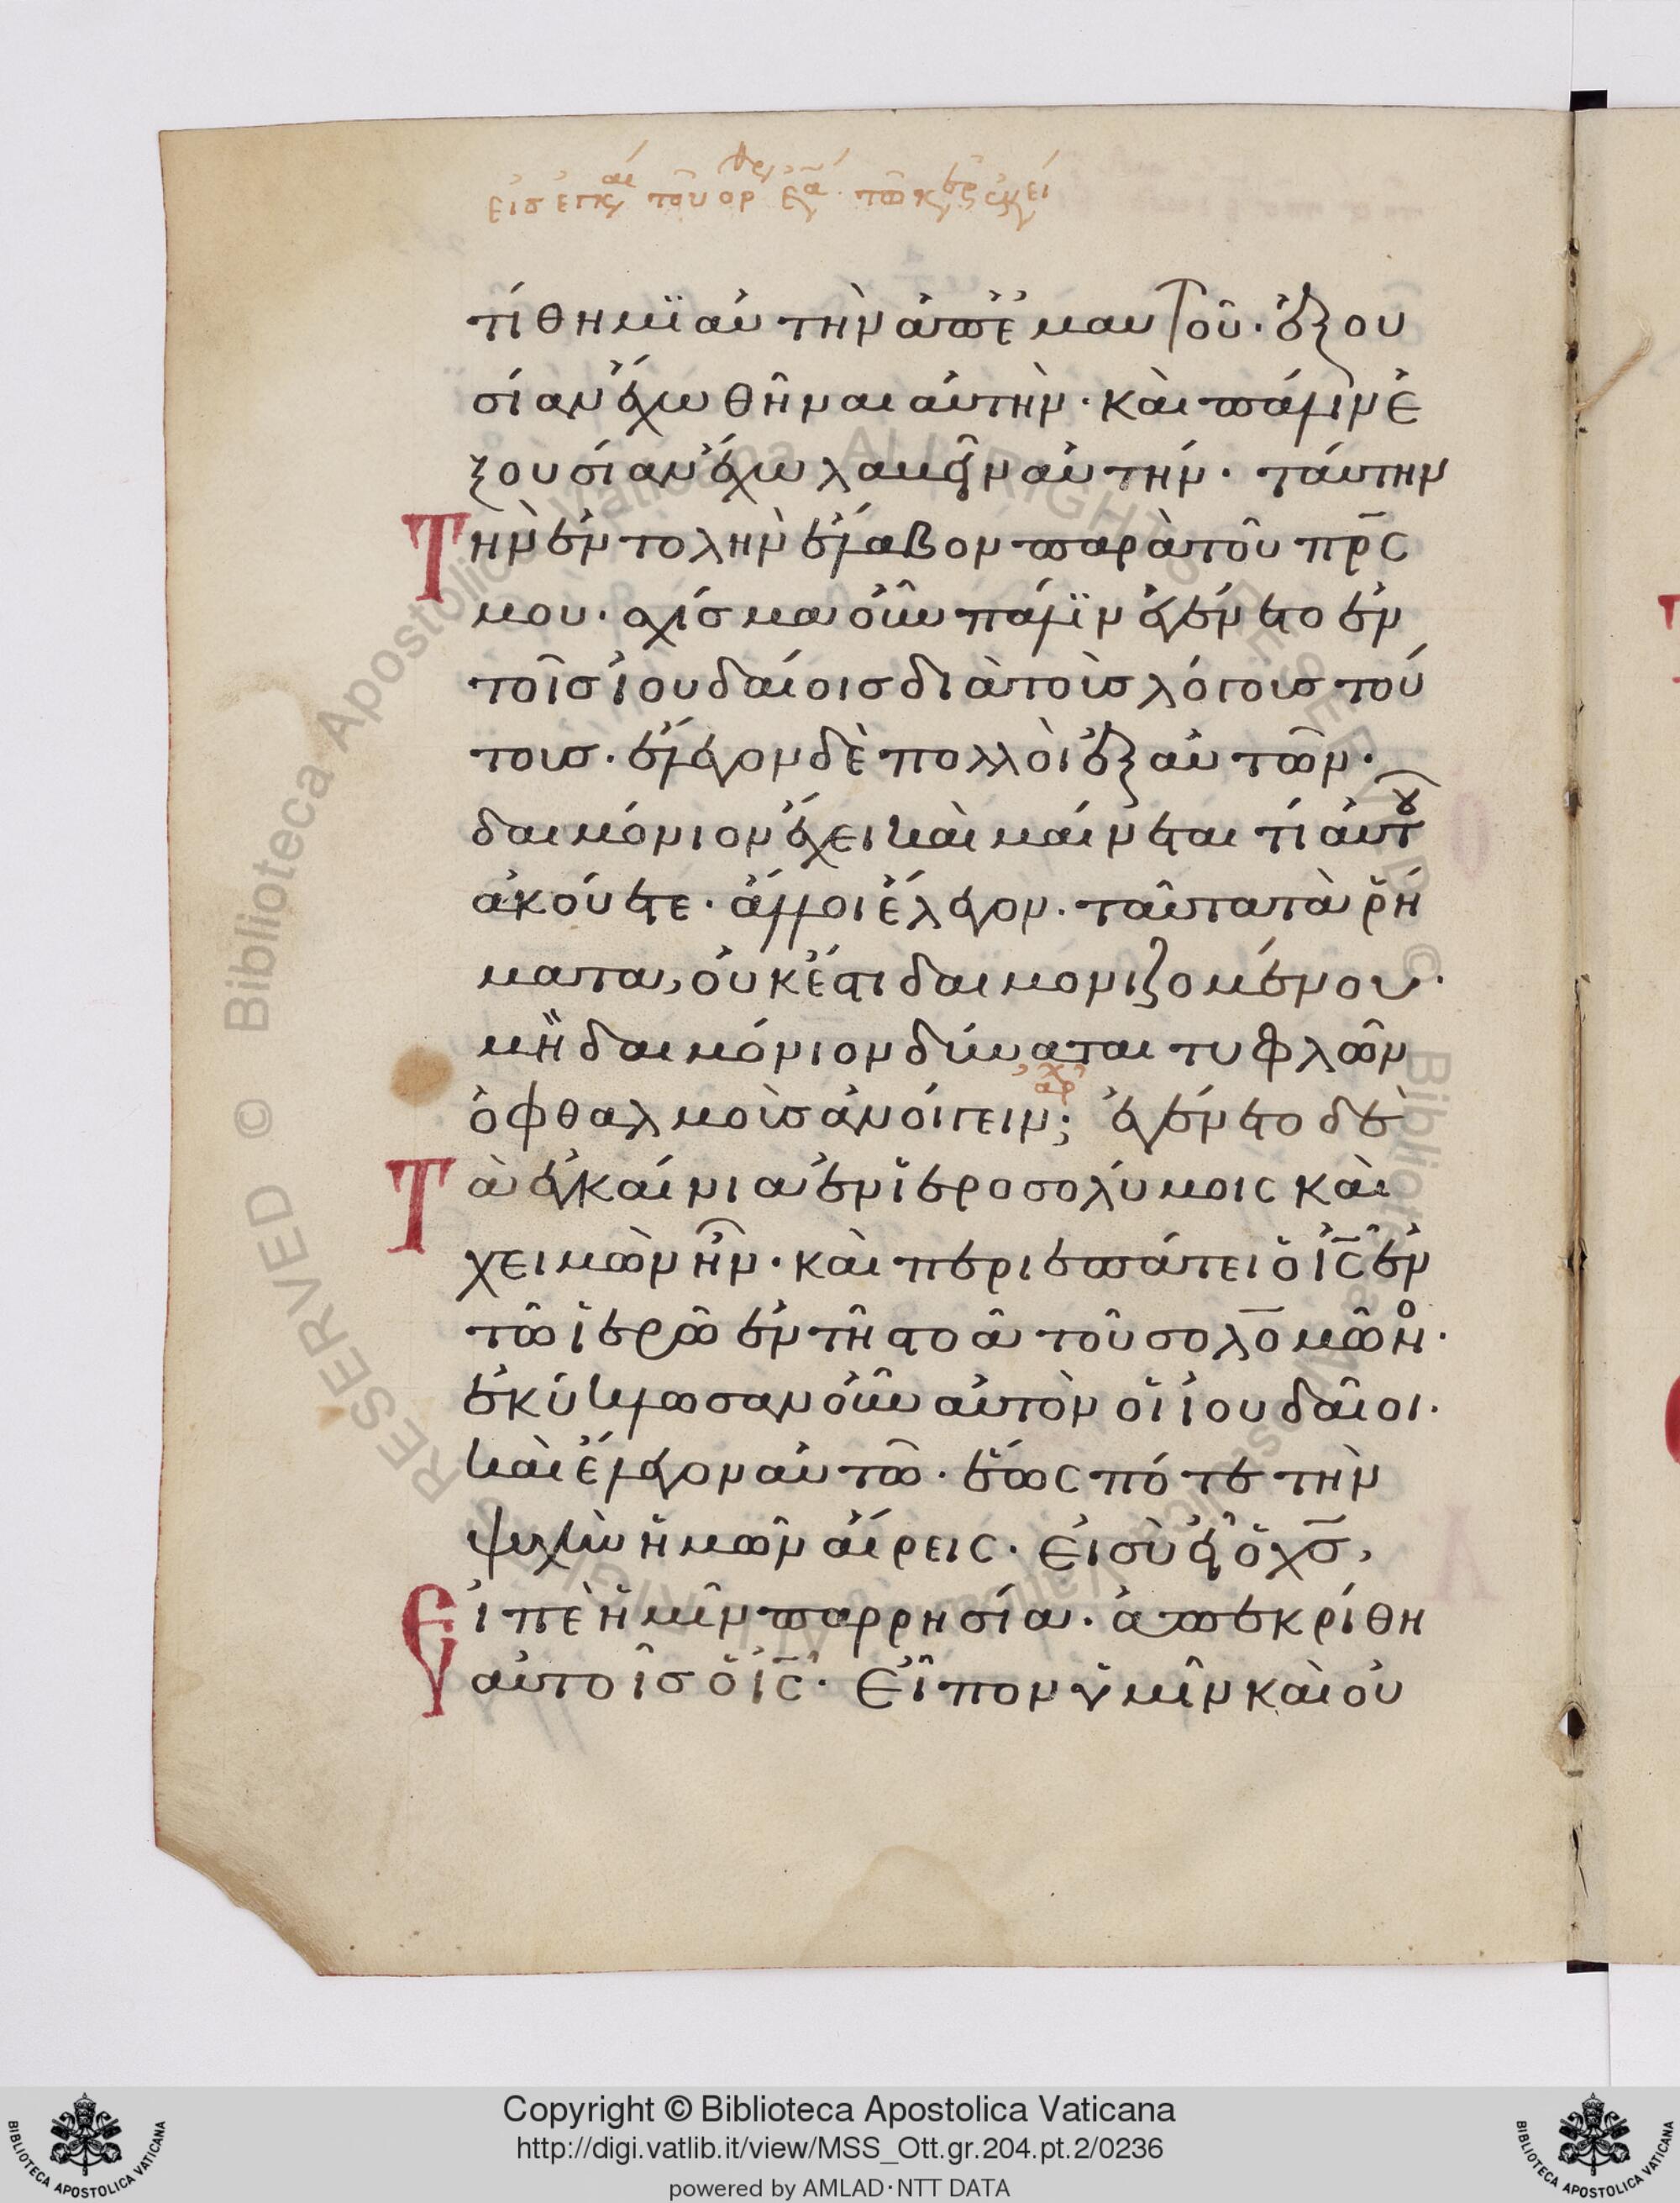 τίθημι αὐτὴν ἀπ' ἐμαυτοῦ· ἐξου
σίαν ἔχω θῆναι αὐτὴν· καὶ πάλιν ἐ
ξουσίαν ἔχω λαβεῖν αὐτήν· ταύτην
Τὴν ἐντολὴν ἔλαβον παρὰ τοῦ πρς
μου· σχίσμα οὖν πάλϊν ἐγένετο ἐν
τοῖς ἰουδαίοις διὰ τοὺς λόγους τού
τους· ἔλεγον δὲ πολλοὶ ἐξ αὐτῶν·
δαιμόνιον ἔχει καὶ μαίνεται τί αὐτοῦ
ἀκούετε· ἄλλοι ἔλεγον· ταῦτα τὰ ῥή
ματα, οὐκ ἔστι δαιμονιζομένου·
μὴ δαιμόνιον δύναται τυφλῶν
ὀφθαλμοὺς ἀνοίγειν; ἐγένετο δὲ
Τὰ ἐγκαίνια ἐν ἱεροσολύμοις καὶ
χειμὼν ἦν· καὶ περιεπάτει ὁ ἰς ἐν
τῶ ἱερῶ ἐν τῆ στοᾶ τοῦ σολομῶνος·
ἐκύκλωσαν οὖν αὐτὸν οἱ ἰουδαῖοι·
καὶ ἔλεγον αὐτῶ· ἕως πότε τὴν
ψυχὴν ἡμῶν αἴρεις· εἰ σὺ εἶ ὁ χς,
Εἰπὲ ἡμῖν παρρησία· ἀπεκρίθη
αὐτοῖς ὁ ἰς· Εἶπον ὑμῖν καὶ οὐ
Copyright © Biblioteca Apostolica Vaticana
http://digi.vatlib.it/view/MSS_Ott.gr.204.pt.2/0236
powered by AMLAD·NTT DATA
BIBLIOTECA APOSTOLICA VATICANA
BIBLIOTECA APOSTOLICA VATICANA